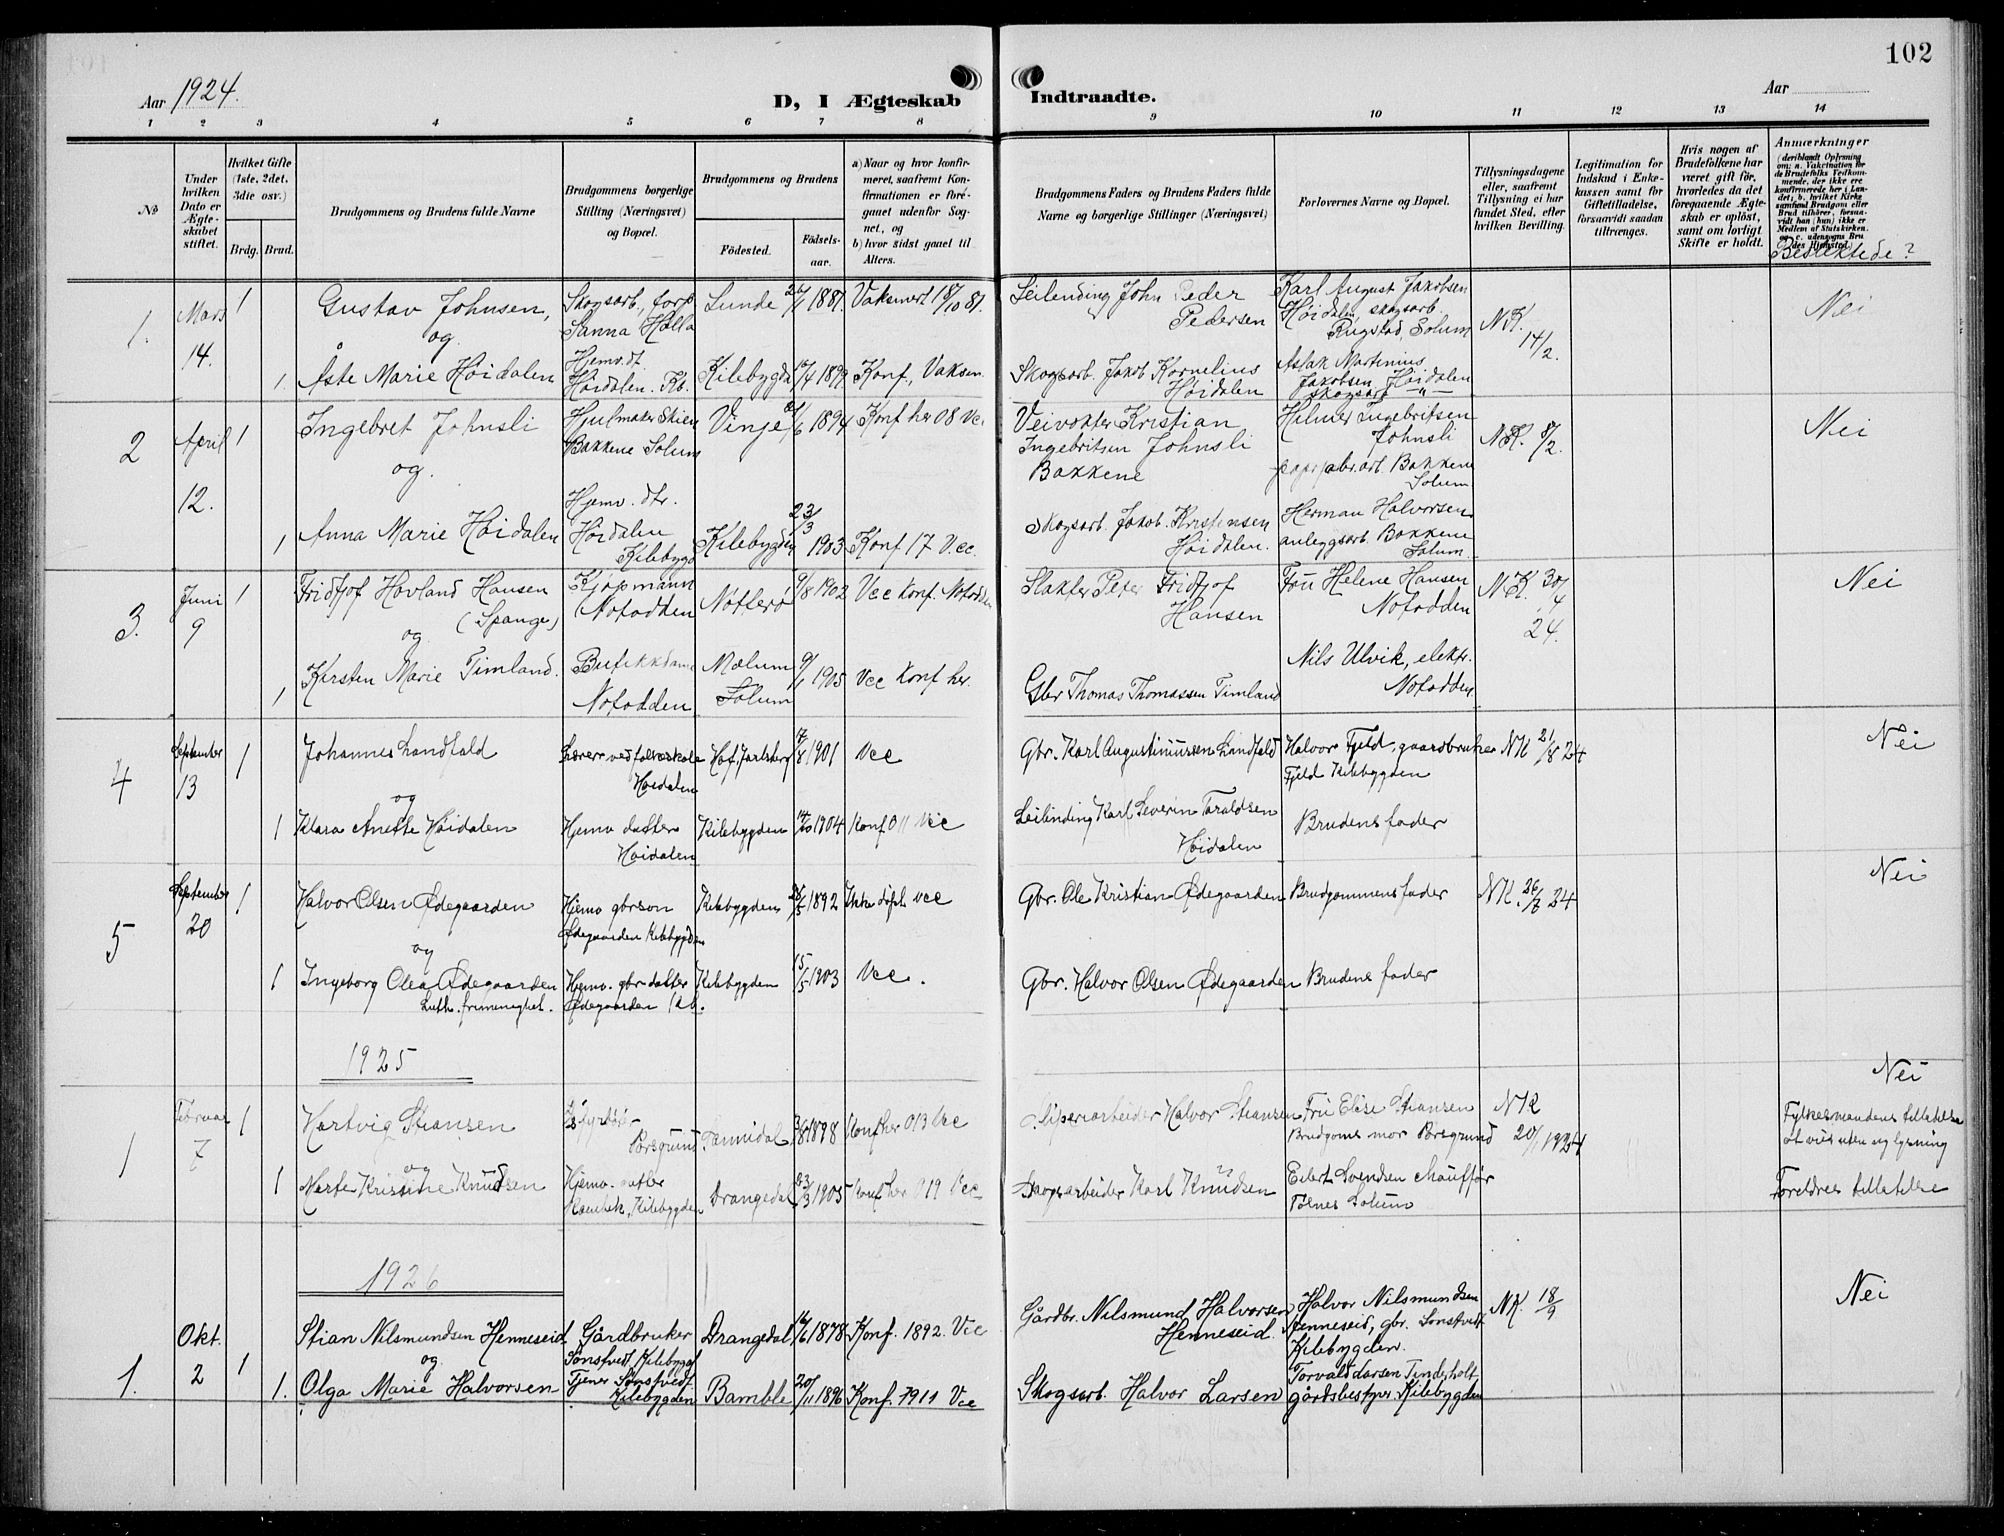 102
Aar 1924.
D, I Ægteskab Indtraadte.
Aar
1 2 3 4 5 6 7 8 9 10 11 12 13 14
№
Under hvilken Dato er Ægteskabet stiftet.
Hvilket Gifte (1ste, 2det, 3die osv.)
Brdg. Brud.
Brudgommens og Brudens fulde Navne
Brudgommens borgerlige Stilling (Næringsvei) og Bopæl.
Brudgommens og Brudens
Fødested. Fødselsaar.
a) Naar og hvor konfirmeret, saafremt Konfirmationen er foregaaet udenfor Sognet, og
b) hvor sidst gaaet til Alters.
Brudgommens Faders og Brudens Faders fulde Navne og borgerlige Stillinger (Næringsvei)
Forlovernes Navne og Bopæl.
Tillysningsdagene eller, saafremt Tillysning ei har fundet Sted, efter hvilken Bevilling.
Legitimation for Indskud i Enkekassen samt for Giftetilladelse, forsaavidt saadan tiltrænges.
Hvis nogen af Brudefolkene har været gift før, hvorledes da det foregaaende Ægteskab er opløst, samt om lovligt Skifte er holdt.
Anmærkninger
(deriblandt Oplysning om: a. Vakcination for de Brudefolks Vedkommende, der ikke ere konfirmerede her i Landet; b. hvilket Kirkesamfund Brudgom eller Brud tilhører, forsaavidt han (hun) ikke er Medlem af Statskirken, og c. udensogns Brudes Hjemsted.)
Beslektede?
1. Mars 14. 1 Gustav Johnsen, Skogsarb., torp. Sanna Holla Lunde 26/1 1881. Vaksinert 18/10 81. Leilending John Peder Pedersen Karl August Jakobsen Høidalen, skogsarb. Rugstad, Solum N.K. 14/2. Nei
og
1. Åste Marie Høidalen Hjemv. dt. Høidalen. Kb. Kilebygda 17/4 1899 Konf., Vaksin. Skogsarb. Jakob Kornelius Høidalen Aslak Martinius Jakobsen Høidalen skogsarb. "
2 April 12. 1 Ingebret Johnsli Hjulmaker Skien Bakkene Solum Vinje 1894 Konf her 08 Vcc Veivokter Kristian Ingebritsen Johnsli Bakkene Helmer Ingebritsen Johnsli papirfabr.arb. Bakkene Solum N.K. 8/2. Nei
og.
1 Anna Marie Høidalen Hjemv. dtr. Høidalen Kilebygd Kilebygden 23/3 1903 Konf 17 Vcc. Skogsarb. Jakob. Kristensen Høidalen. Herman Halvorsen anleggsarb. Bakkene Solum.
3. Juni 9 1 Fridtjof Hovland Hansen (Spange) Kjøpmann Notodden Nøtterø 9/8 1902 Vcc Konf. Notodden Slakter Peter Fridtjof Hansen Fru Helene Hansen Notodden N.K. 30/4 24. Nei
og
1 Kirsten Marie Timland. Butikkdame Notodden Mælum Solum 9/1 1905 Vcc Konf her. Gbr Thomas Thomassen Timland Nils Ulvik, elektr. Notodden.
4 September 13 1 Johannes Landfald Lærer ved folkeskole Høidalen Hof. Jarlsberg 17/8 1901 Vcc Gbr. Karl Augustinussen Landfald Halvor Fjeld, gaardbruker Fjeld Kilebygden NK 21/8 24 Nei
og
1 Klara Anette Høidalen Hjemv datter Høidalen Kilebygden 14/10 1904 Konf 011 Vcc Leilending Karl Severin Taraldsen Høidalen Brudens fader
5 September 20 1 Halvor Olsen Ødegaarden Hjemv gbrsøn Ødegaarden Kilebygden Kilebygden 1892 Ikke døpt vcc Gbr. Ole Kristian Ødegaarden Brudgommens fader NK. 26/8 24 Nei
og
1 Ingeborg Olea Ødegaarden Luth. frimenighet. Hjemv. gbr datter Ødegaarden Kb. Kilebygden 15/5 1903 Vcc. Gbr. Halvor Olsen Ødegaarden Brudens fader
1925
1 Februar 7 1 Hartvig Stiansen Porsgrund. Sannidal 1898 Konf her 013 Vcc Sliperiarbeider Halvor Stiansen Fru Elise Stiansen Brudgoms mor Porsgrund NK 20/1 1924 Nei
Fylkesmandens tillatelse at vies uten ny lysning
og
1 Marte Kristine Knudsen Hjemv. datter Kilebygden Drangedal 23/3 1905 Konf her 019 Vcc Skogsarbeider Karl Knudsen Eilert Svendsen Chauffør Tolnes Solum Foreldres tillatelse
1926
1. Okt. 2 1 Stian Nilsmundsen Henneseid Gårdbruker Sønstvedt, Kilebygd Drangedal 1878 Konf. 1892. Vcc Gårdbr. Nilsmund Halvorsen Henneseid. Halvor Nilsmundsen Henneseid, gbr. Sønstvedt Kilebygden. NK. 18/9 Nei
og
1. Olga Marie Halvorsen Tjener Sønstvedt Kilebygden Bamble 20/11 1896 Konf. 1911 Vcc Skogsarb. Halvor Larsen Torvald Larsen Tinderholt gårdsbestyrer Kilebygden